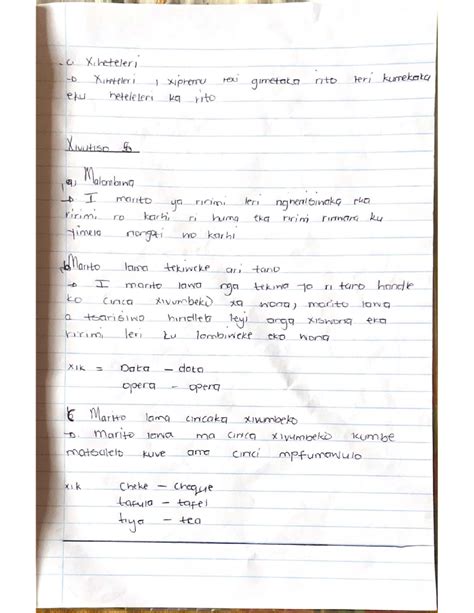 c Xiheteleri
→ Ximeteleri, xiphemu lexi gimetaka rito leri kumekaka
eku heteleleri ka rito
Xivutiso 8
a) Malombana
→ I marito ya ririmi leri nghenisiwaka eka
ririmi ro karhi ri huma eka ririmi rinwana ku
yimela nongoti wo karhi
b) Marito lama tekiweke ari tano
→ I marito lawa nga tekiwa ya ri tano handle
ko cinca xivumbeko xa wona, marito lawa
a tsarisiwo hindlela leyi
ririmi leri ku lombiweke eko wona
xik = Data - data
opera - opera
c Marito lama cincaka xivumbeko
→ Marito lawa ma cinca xivumbeko kumbe
matsalelo kuve ama cinci mpfumawulo
xik Cheke - cheque
tafula - tafel
tiya - tea